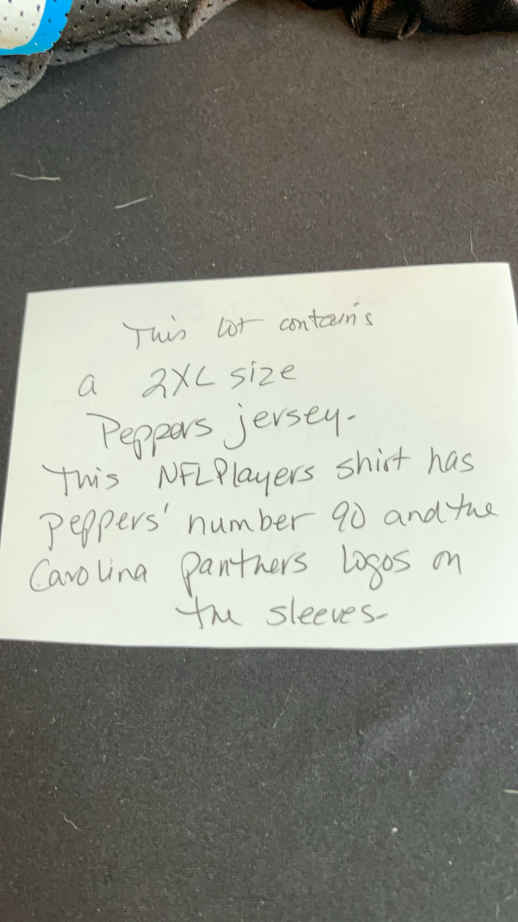 This lot contains
a 2XL size
Peppers jersey.
This NFL Players shirt has
Peppers' number 90 and the
Carolina panthers logos on
the sleeves.